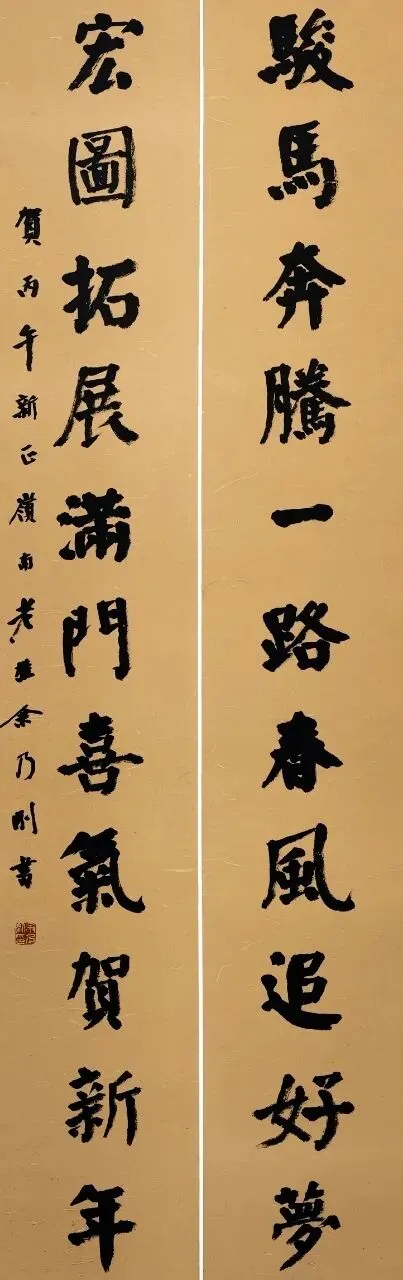 駿馬奔騰一路春風追好夢
宏圖拓展滿門喜氣賀新年
賀丙午新正嶺南老雄余乃刚書